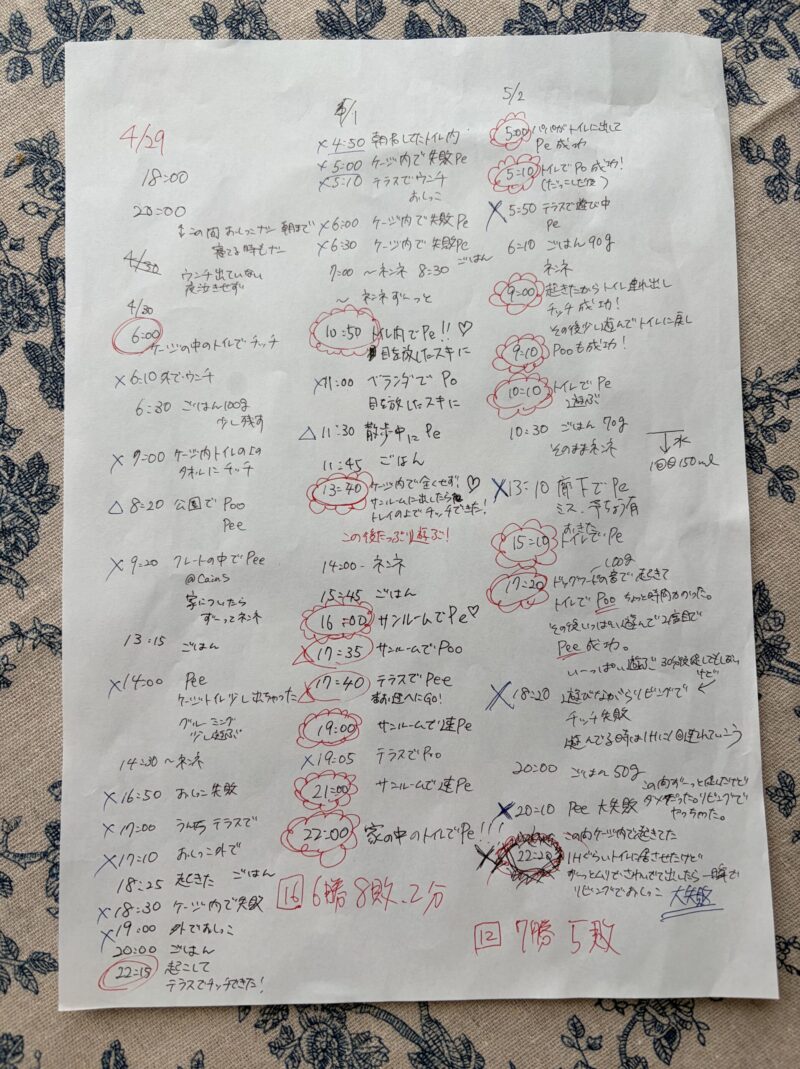 4/29
18:00
20:00
この間 おしっこナシ 朝まで
寝てる時もナシ
4/30
ウンチ出ていない
夜泣きせず
4/30
6:00
ケージの中のトイレでチッチ
×6:10 外でウンチ
6:30 ごはん100g
少し残す
×7:00 ケージ内トイレの上の
タオルにチッチ
△8:20 公園でPoo
Pee
×9:20 クレートの中でPee
@Cains
家についたら
ずーっとネンネ
13:15 ごはん
×14:00 Pee
ケージトイレ少し出ちゃった
グルーミング
少し遊ぶ
14:30 ~ネンネ
×16:50 おしっこ失敗
×17:00 うんち テラスで
×17:10 おしっこ外で
18:25 起きた ごはん
×18:30 ケージ内で失敗
×19:00 外でおしっこ
20:00 ごはん
22:15 起こして
テラスでチッチできた!
5/1
×4:50 トイレ内
×5:00 ケージ内で失敗Pe
×5:10 テラスでウンチ
おしっこ
×6:00 ケージ内で失敗Pe
×6:30 ケージ内で失敗Pe
7:00 ~ネンネ 8:30 ごはん
~ ネンネずーっと
10:50 トイレ内でPe!!♡
目を放したスキに
×11:00 ベランダでPo
目を放したスキに
△11:30 散歩中にPe
11:45 ごはん
13:40 ケージ内で全くせず!♡
サンルームに出したら
トレイの上でチッチできた!
この後たっぷり遊ぶ!
14:00- ネンネ
15:45 ごはん
16:00 サンルームでPe♡
17:35 サンルームでPoo
17:40 テラスでPee
19:00 サンルームで1連Pe
×19:05 テラスでPoo
21:00 サンルームで連Pe
22:00 家の中のトイレでPe!!!
16 6勝 8敗、2分
5/2
5:00 パパがトイレに出して
Pe成功
5:10 トイレでPo成功!
(だっこした後)
×5:50 テラスで遊び中
Pe
6:10 ごはん90g
ネンネ
9:00 起きたからトイレ連れ出し
チッチ成功!
その後少し遊んでトイレに戻し
9:10 Pooも成功!
10:10 トイレでPe
遊ぶ
10:30 ごはん70g
そのままネンネ
水
1回目150ml
×13:10 廊下でPe
ミス、
おきた
15:10 トイレでPe
100g
17:20 ドッグフードの音で起きて
トイレでPoo ちょっと時間かかった。
その後いっぱい遊んで2度目で
Pee成功。
いーっぱい遊ぶ
×18:20 遊びながらリビングで
チッチ失敗
遊んでる時は1Hに1回連れていこう
20:00 ごはん50g
×20:10 Pee 大失敗
この間ずーっと促したけど
ダメだった。リビングで
やっちゃった。
22:20
この間ケージ内で起きてた
1Hぐらいトイレに居させたけど
出したら一瞬で
リビングでおしっこ 大失敗
12 7勝 5敗